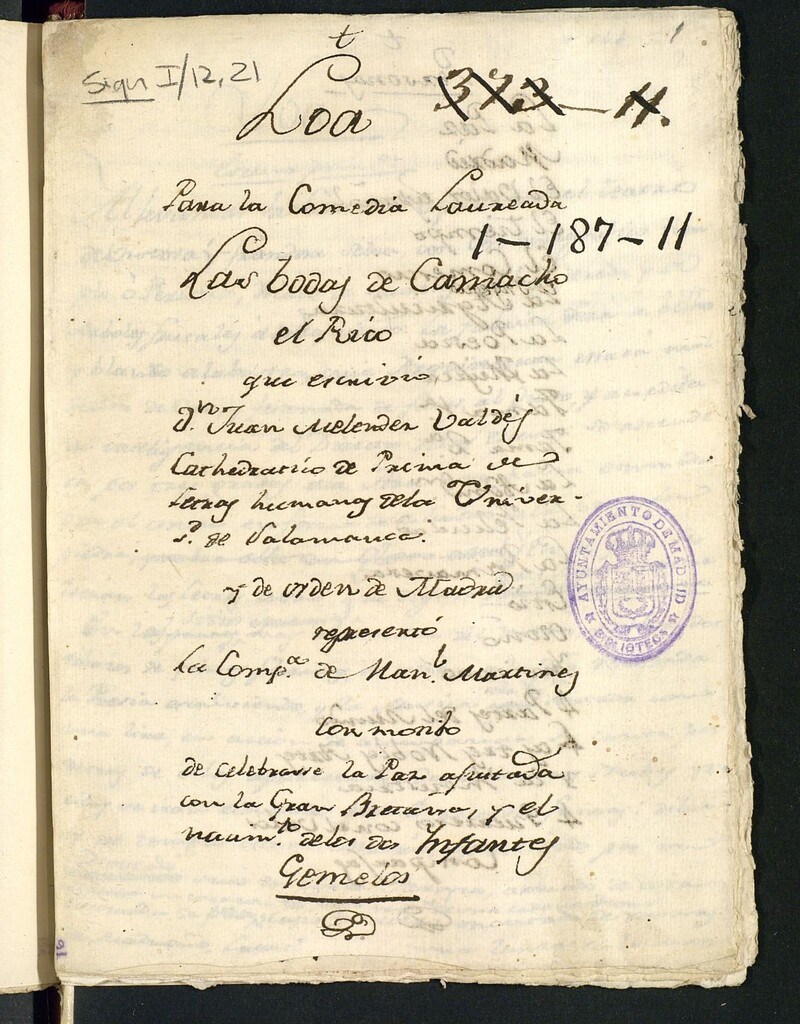 t
1
Sign I/12, 21
373 - 11.
Loa
Para la Comedia Laureada
1-187-11
Las bodas de Camacho
el Rico
que escrivió
Dn. Juan Melendez Valdés
Cathedratico de Prima de
Letras humanas de la Univer-
sd. de Salamanca.
y de orden de Madrid
representó
La Compª. de Manl. Martinez
con motibo
de celebrarse la Paz ajustada
con la Gran Bretaña, y el
nacimto. de los dos Infantes
Gemelos
AYUNTAMIENTO DE MADRID
BIBLIOTECA